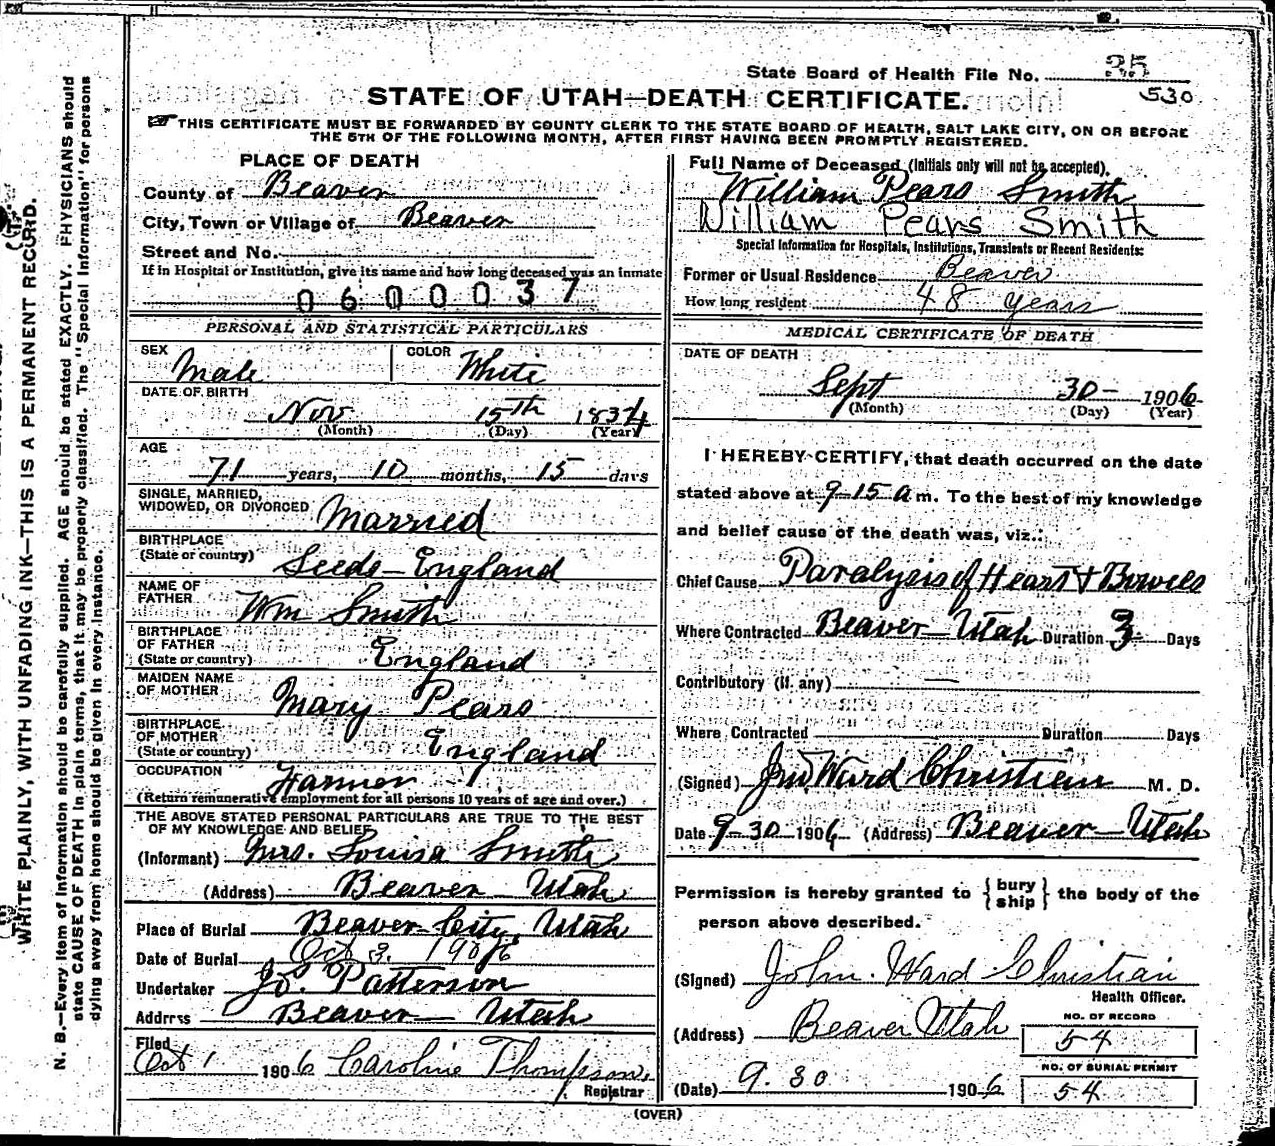 State Board of Health File No. 25
530
STATE OF UTAH—DEATH CERTIFICATE.
THIS CERTIFICATE MUST BE FORWARDED BY COUNTY CLERK TO THE STATE BOARD OF HEALTH, SALT LAKE CITY, ON OR BEFORE
THE 5TH OF THE FOLLOWING MONTH, AFTER FIRST HAVING BEEN PROMPTLY REGISTERED.
PLACE OF DEATH
County of Beaver
City, Town or Village of Beaver
Street and No.
If in Hospital or Institution, give its name and how long deceased was an inmate
0600037
PERSONAL AND STATISTICAL PARTICULARS
SEX Male COLOR White
DATE OF BIRTH
Nov 15th 1834
(Month) (Day) (Year)
AGE
71 years, 10 months, 15 days
SINGLE, MARRIED,
WIDOWED, OR DIVORCED Married
BIRTHPLACE
(State or country) Leeds—England
NAME OF
FATHER Wm Smith
BIRTHPLACE
OF FATHER
(State or country) England
MAIDEN NAME
OF MOTHER Mary Pears
BIRTHPLACE
OF MOTHER
(State or country) England
OCCUPATION Farmer
(Return remunerative employment for all persons 10 years of age and over.)
THE ABOVE STATED PERSONAL PARTICULARS ARE TRUE TO THE BEST
OF MY KNOWLEDGE AND BELIEF
(Informant) Mrs. Louisa Smith
(Address) Beaver Utah
Place of Burial Beaver City, Utah
Date of Burial Oct 3. 1906
Undertaker Jos. Patterson
Address Beaver— Utah
Filed
Oct 1 1906 Caroline Thompson,
Registrar
Full Name of Deceased (Initials only will not be accepted).
William Pears Smith
William Pears Smith
Special Information for Hospitals, Institutions, Transients or Recent Residents:
Former or Usual Residence Beaver
How long resident 48 years
MEDICAL CERTIFICATE OF DEATH
DATE OF DEATH
Sept 30— 1906
(Month) (Day) (Year)
I HEREBY CERTIFY, that death occurred on the date
stated above at 9-15 a m. To the best of my knowledge
and belief cause of the death was, viz.:
Chief Cause Paralysis of Heart & Bowels
Where Contracted Beaver—Utah Duration 3 Days
Contributory (if any) —
Where Contracted Duration Days
(Signed) Jno Ward Christian M. D.
Date 9-30 1906 (Address) Beaver—Utah
Permission is hereby granted to {bury ship} the body of the
person above described.
(Signed) John. Ward Christian
Health Officer.
(Address) Beaver Utah
NO. OF RECORD
54
NO. OF BURIAL PERMIT
54
(Date) 9. 30 1906
(OVER)
WRITE PLAINLY, WITH UNFADING INK—THIS IS A PERMANENT RECORD.
N. B.—Every item of information should be carefully supplied. AGE should be stated EXACTLY. PHYSICIANS should
state CAUSE OF DEATH in plain terms, that it may be properly classified. The "Special Information" for persons
dying away from home should be given in every instance.